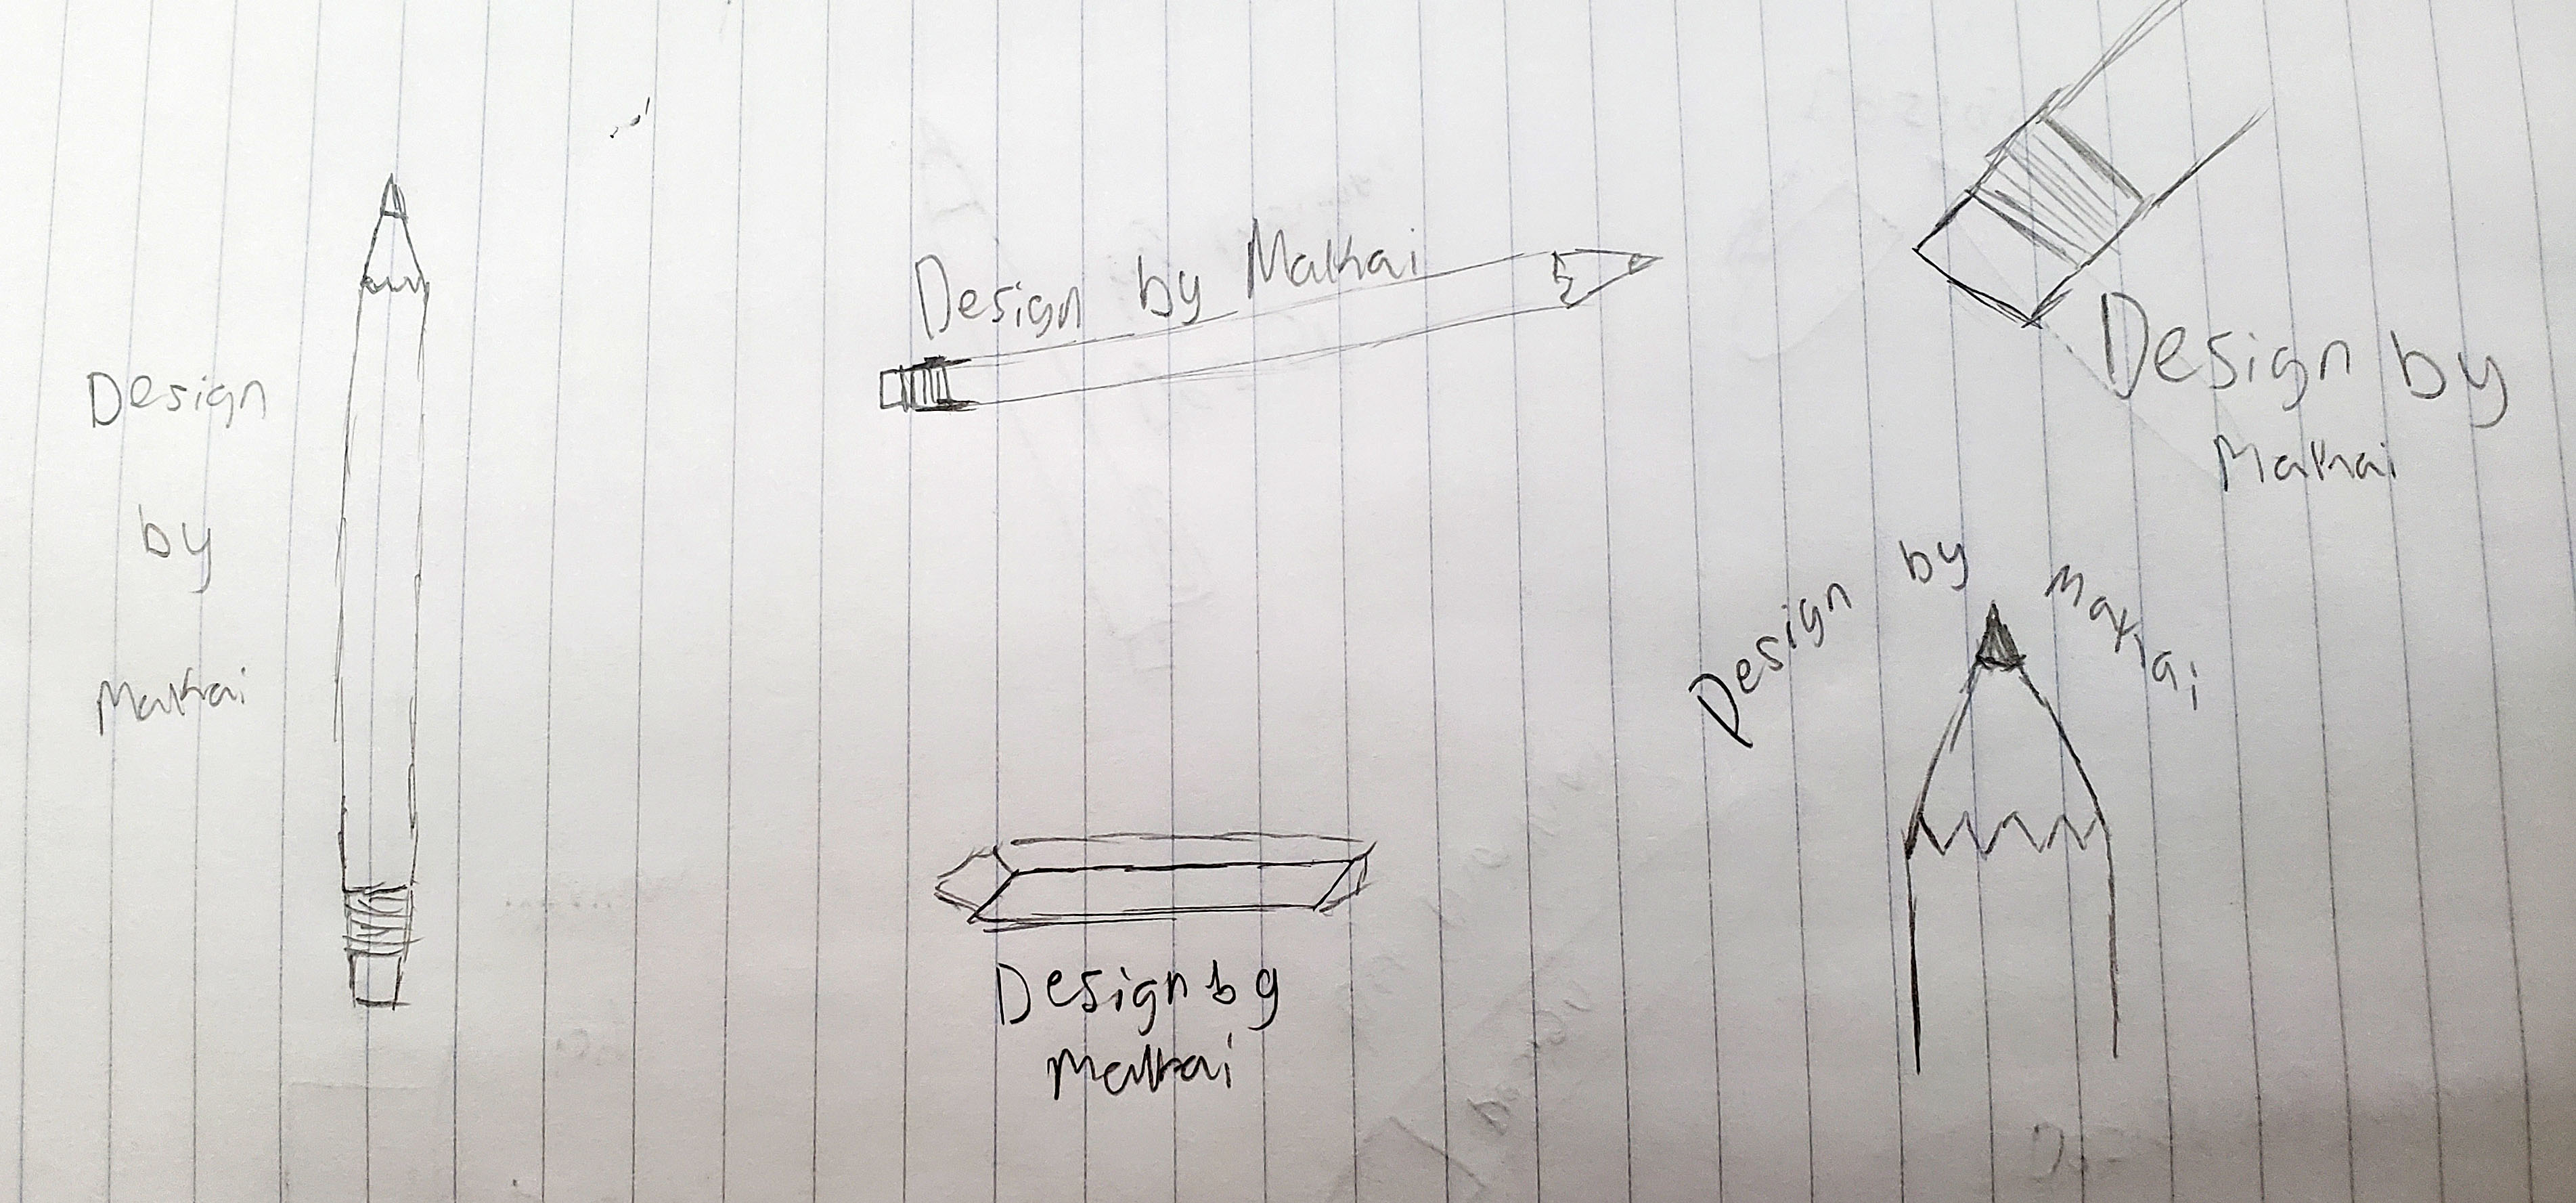 Design
by
Malkai
Design by Malkai
Design by
Malkai
Design by Malkai
Design by
Malkai